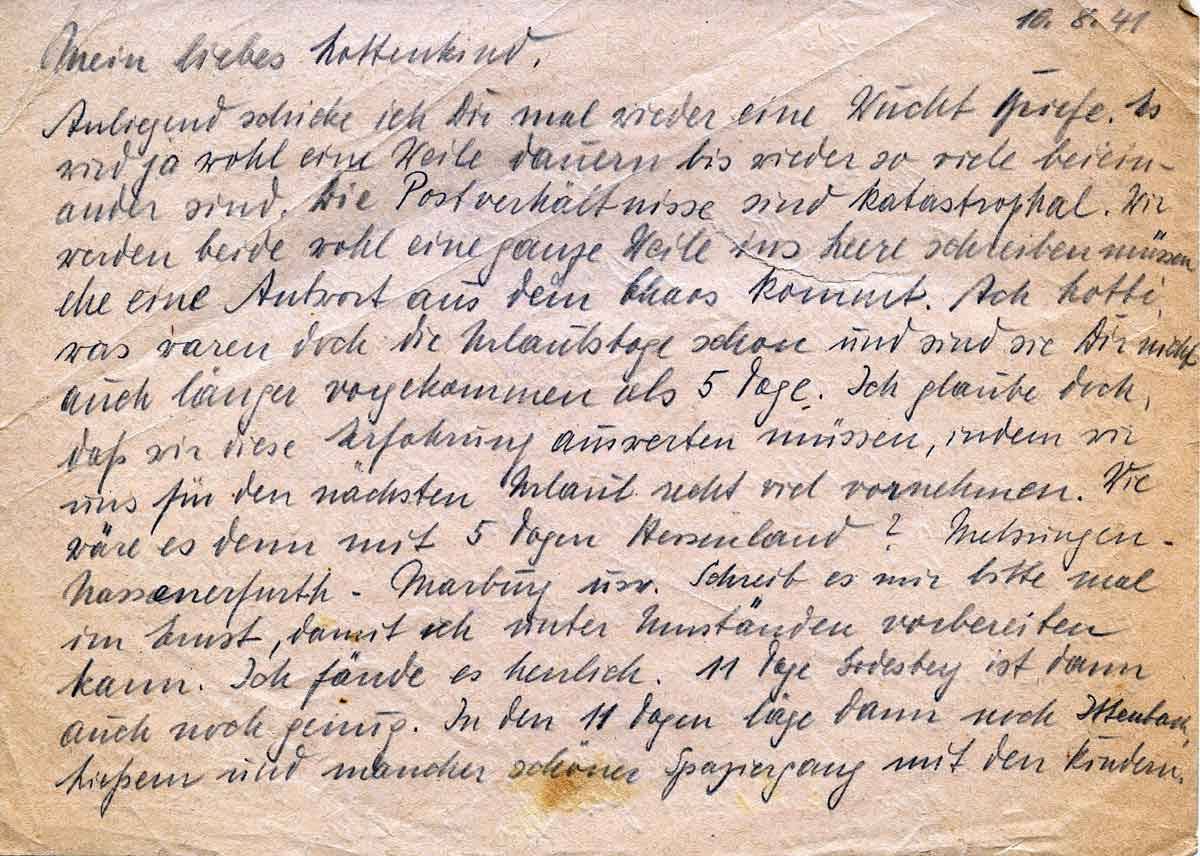 10. 8. 41
Mein liebes Lottenkind.
Anliegend schicke ich Dir mal wieder eine Wucht Briefe. Es
wird ja wohl eine Weile dauern bis wieder so viele beiein-
ander sind. Die Postverhältnisse sind katastrophal. Wir
werden beide wohl eine ganze Weile ins Leere schreiben müssen
ehe eine Antwort aus dem Chaos kommt. Ach Lotti,
was waren doch die Urlaubstage schön und sind sie Dir nicht
auch länger vorgekommen als 5 Tage. Ich glaube doch,
daß wir diese Erfahrung auswerten müssen, indem wir
uns für den nächsten Urlaub recht viel vornehmen. Wie
wäre es denn mit 5 Tagen Hessenland? Melsungen -
Nassenerfurth - Marburg usw. Schreib es mir bitte mal
im Ernst, damit ich unter Umständen vorbereiten
kann. Ich fände es herrlich. 11 Tage Godesberg ist dann
auch noch genug. In den 11 Tagen läge dann noch Ittenbach,
Ließem und mancher schöner Spaziergang mit den Kindern.